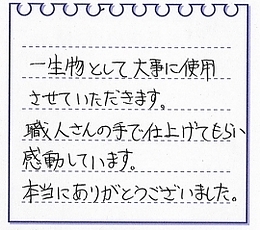 一生物として大事に使用
させていただきます。
職人さんの手で仕上げてもらい
感動しています。
本当にありがとうございました。